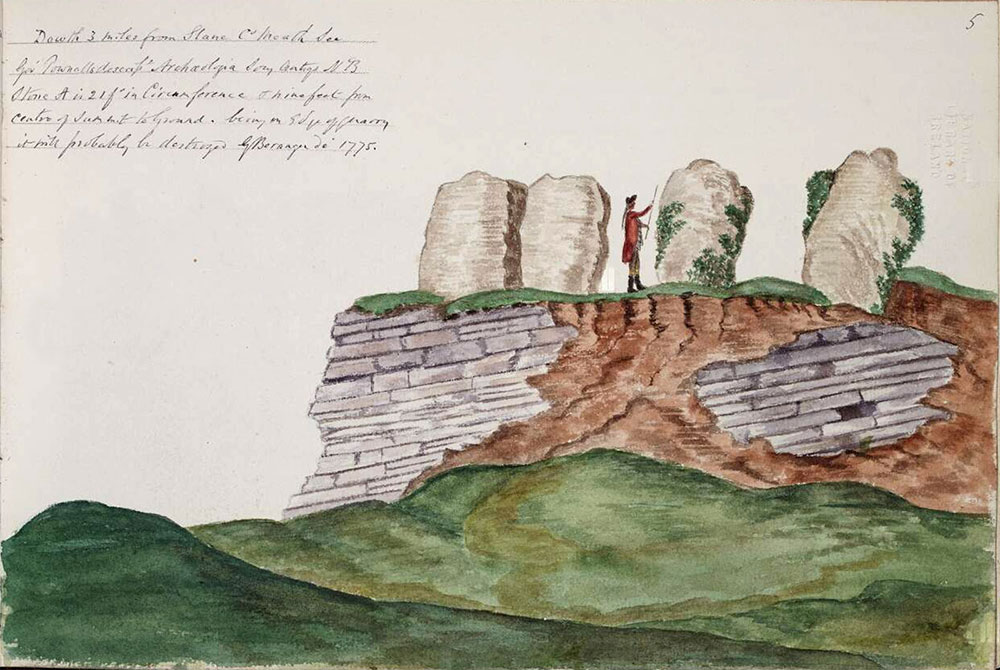 5
Dowth 3 miles from Slane Co Meath See
Govr Pownalls descripn Archæolopia NoB
Stone A is 21 ft in Circumference & nine feet from
centre of Summit to Ground. being on Edge of Quarry
it will probably be destroyed G Beranger de 1775.
NATIONAL
LIBRARY OF
IRELAND